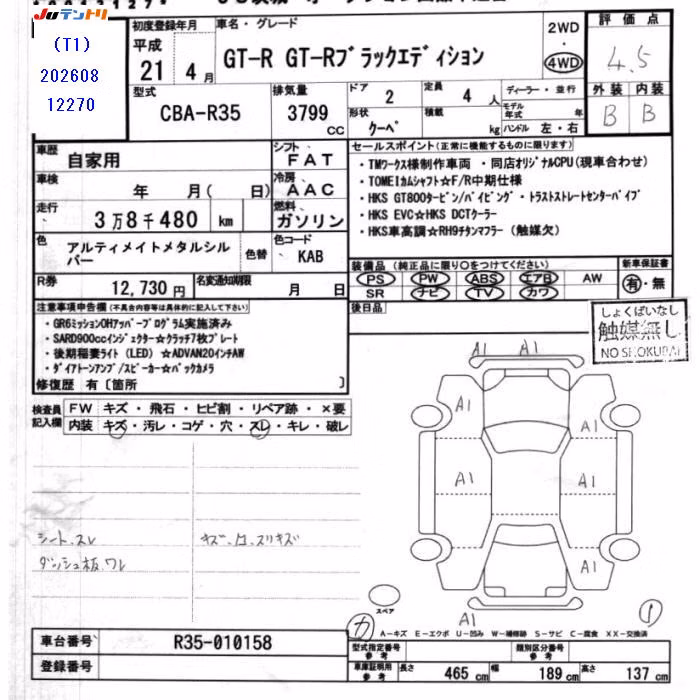 JUテントリ
(T1)
202608
12270
初度登録年月
平成
21 4月
車名・グレード
GT-R GT-Rブラックエディション
2WD
・
4WD
評価点
4.5
外装 内装
B B
型式
CBA-R35
排気量
3799 CC
ドア
2
定員
4 人
形状
クーペ
積載
kg
ディーラー・並行
モデル年式 年
ハンドル 左・右
車歴
自家用
シフト
FAT
車検
年 月( 日)
冷房
AAC
走行
3万8千480 km
燃料
ガソリン
色
アルティメイトメタルシルバー
色替
色コード
KAB
R券
12,730円
名変通知期限
月 日
セールスポイント(正常に機能するものに限ります)
・TMワークス様制作車両 ・同店オリジナルCPU(現車合わせ)
・TOMEIカムシャフト☆F/R中期仕様
・HKS GT800タービン/パイピング・トラストストレートセンターパイプ
・HKS EVC☆HKS DCTクーラー
・HKS車高調☆RH9チタンマフラー(触媒欠)
装備品(純正品に限り○をつけてください)
PS PW ABS エアB AW
SR ナビ TV カワ
新車保証書
有・無
後日品
注意事項申告欄(不具合内容等は具体的に記入して下さい)
・GR6ミッションOHアッパープログラム実施済み
・SARD900ccインジェクター☆クラッチ7枚プレート
・後期稲妻ライト(LED)☆ADVAN20インチAW
・ダイアトーンアンプ/スピーカー☆バックカメラ
修復歴 有〔箇所 〕
しょくばいなし
触媒無し
NO SHOKUBAI
検査員記入欄
FW キズ・飛石・ヒビ割・リペア跡・×要
内装 キズ・汚レ・コゲ・穴・スレ・キレ・破レ
シート、スレ
キズ、スリキズ
ダッシュ板、ワレ
A1 A1
A1 A1
A1 A1
A1
A1
スペア
カ
1
A-キズ E-エクボ U-凹み W-補修跡 S-サビ C-腐食 XX-交換済
車台番号
R35-010158
登録番号
型式指定番号 参考
類別区分番号 参考
車庫証明用 参考
長さ 465 cm 幅 189 cm 高さ 137 cm